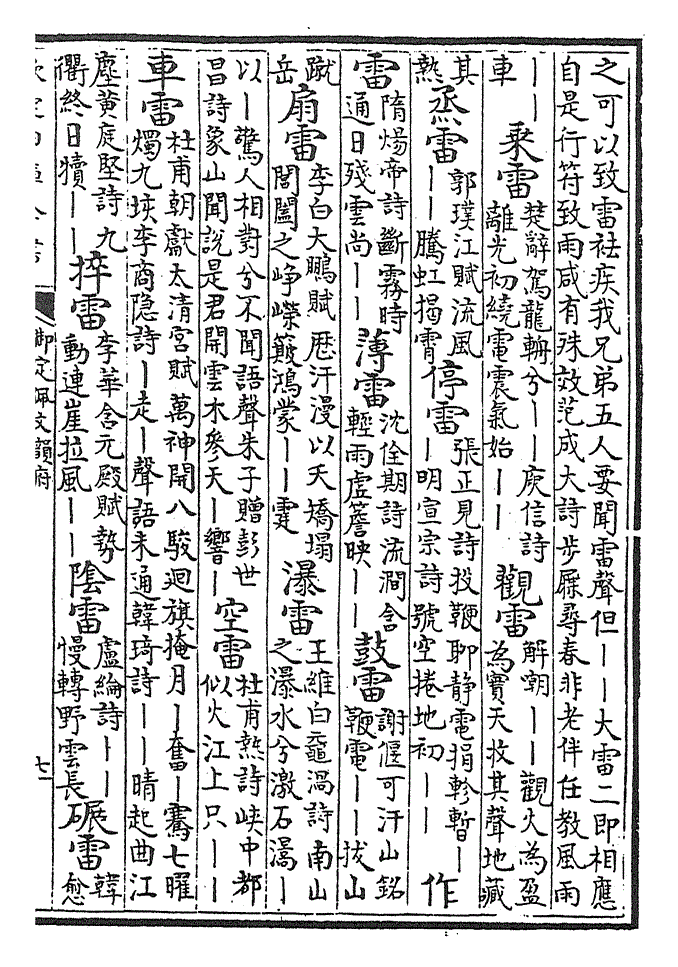 之可以致雷祛疾我兄弟五人要聞雷聲但——大雷二即相應
自是行符致雨咸有殊效范成大詩步屧尋春非老伴任教風雨
——
車
乘雷
楚辭駕龍輈兮——庾信詩
離光初繞電震氣始——
觀雷
解嘲——觀火為盈
為實天收其聲地藏
其
熱
烝雷
郭璞江賦流風
——騰虹揚霄
停雷
張正見詩投鞭聊静電捐軫暫—
—明宣宗詩號空捲地初——
作
雷
隋煬帝詩斷霧時
通日殘雲尚——
薄雷
沈佺期詩流澗含
輕雨虛簷映——
鼓雷
謝偃可汗山銘
鞭電——拔山
蹴
岳
扇雷
李白大鵬賦歷汗漫以夭矯塌
閶闔之崢嶸簸鴻蒙——霆
瀑雷
王維白黿渦詩南山
之瀑水兮激石瀥—
以—驚人相對兮不聞語聲朱子贈彭世
昌詩象山聞說是君開雲木參天—響—
空雷
杜甫熱詩峽中都
似火江上只——
車雷
杜甫朝獻太清宮賦萬神開八駿迴旗掩月—奮—騫七曜
燭九垓李商隐詩—走—聲語未通韓琦詩——晴起曲江
塵黄庭堅詩九
衢終日犢——
捽雷
李華含元殿賦勢
動連崖拉風——
陰雷
盧綸詩——
慢轉野雲長
碾雷
韓
愈
欽定四庫全書
御定佩文韻府
七